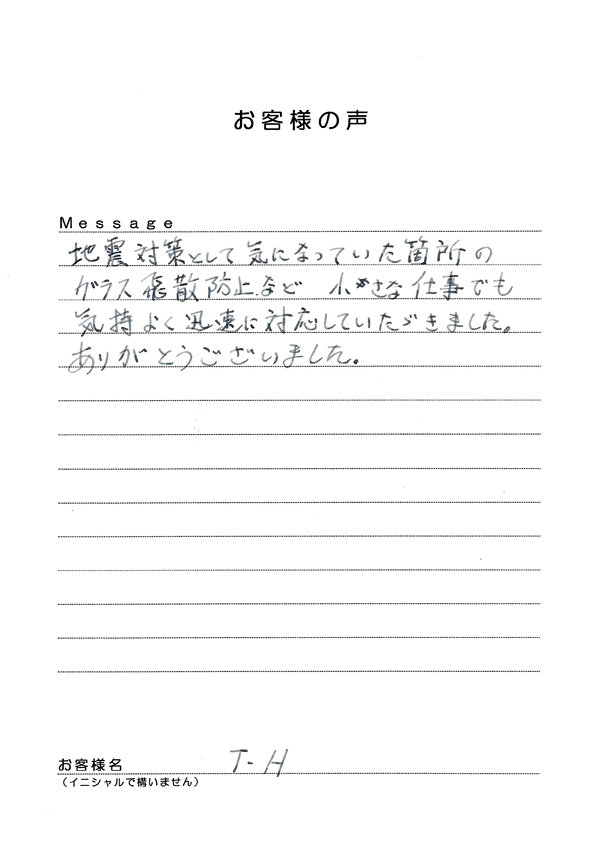 お客様の声
Message
地震対策として気になっていた箇所の
ガラス飛散防止など 小さな仕事でも
気持よく迅速に対応していただきました。
ありがとうございました。
お客様名 T-H
（イニシャルで構いません）